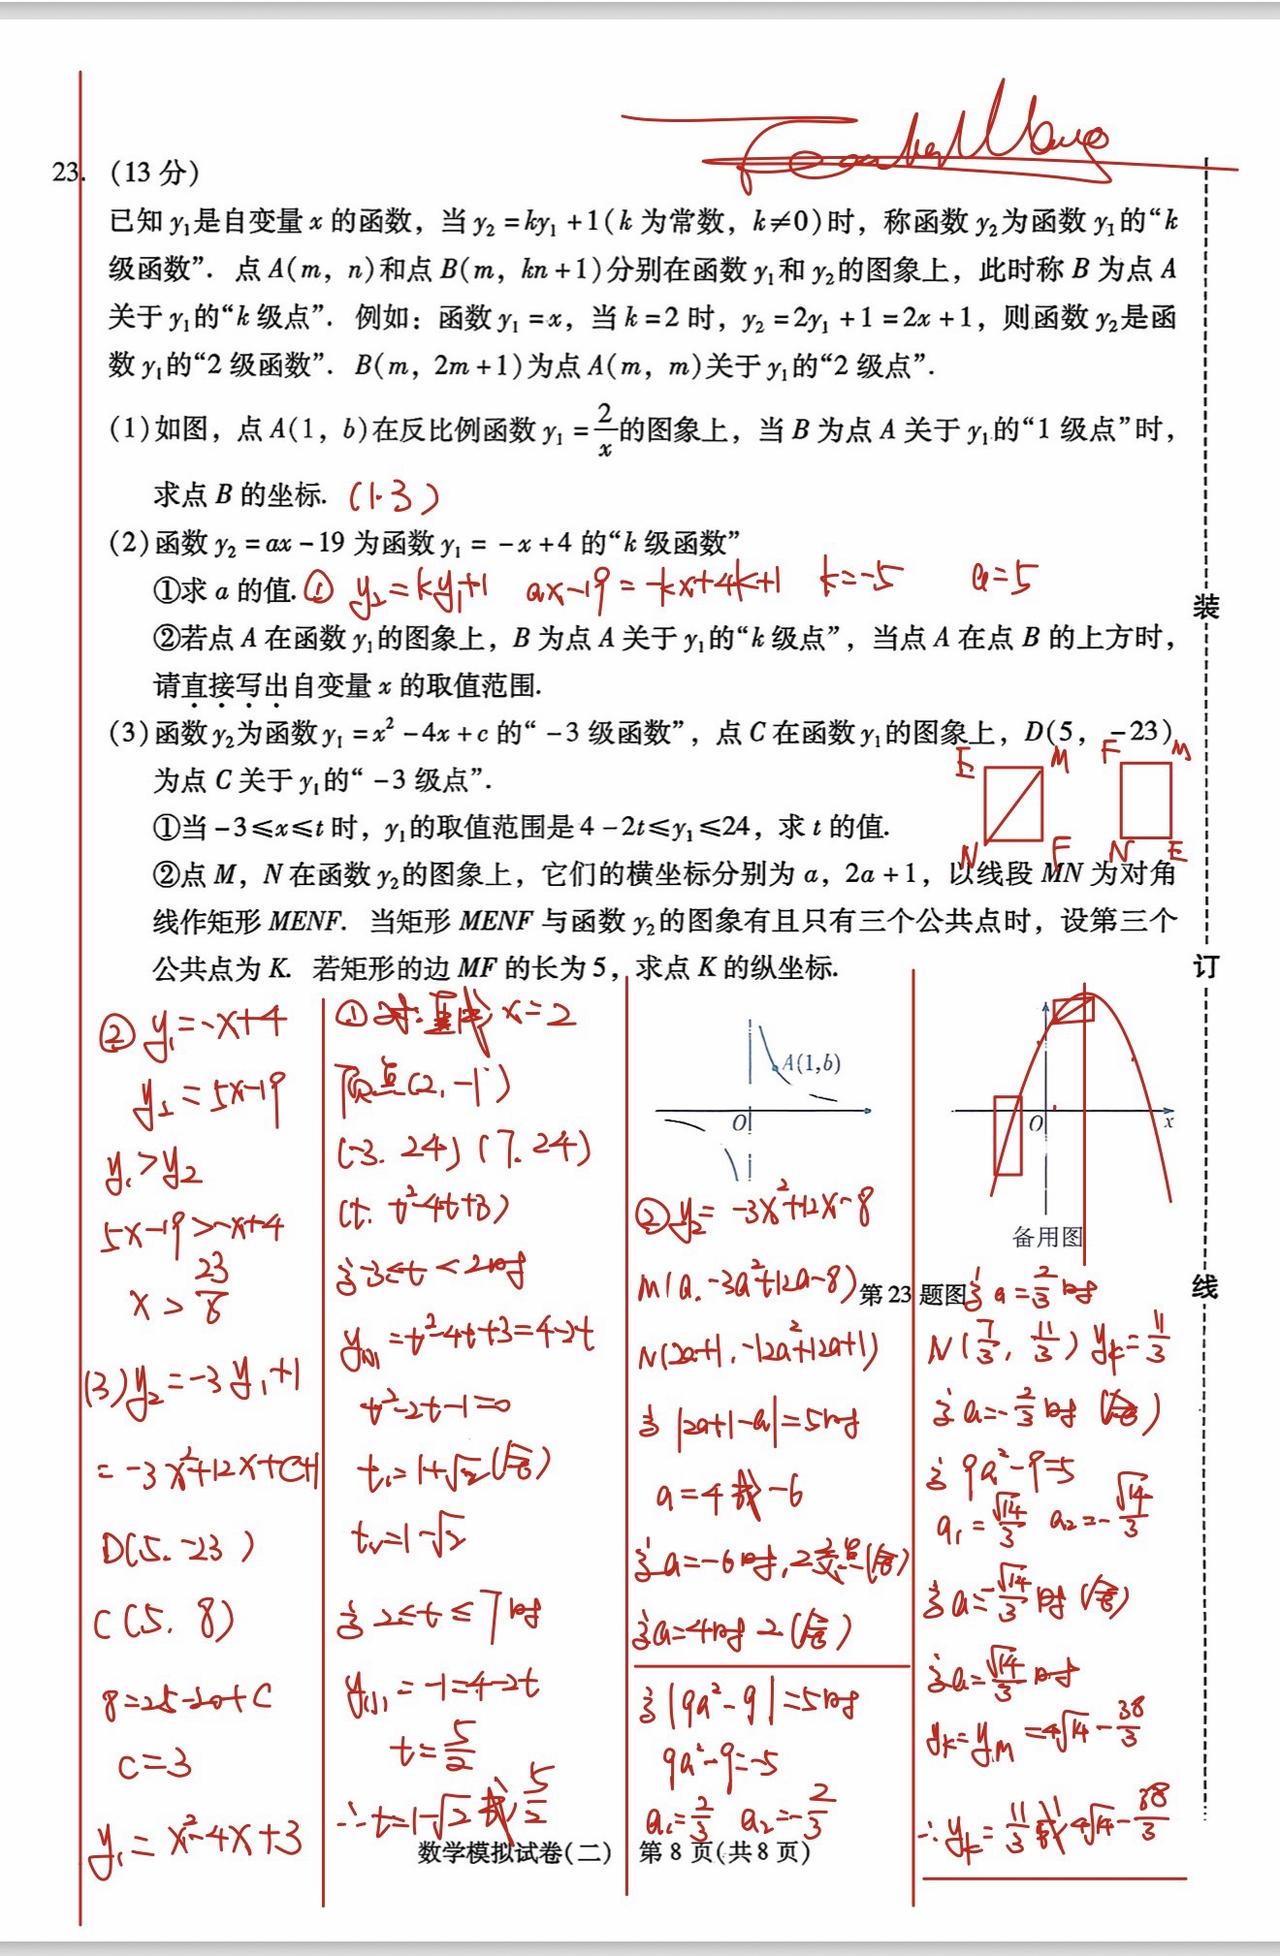 23. (13 分)
已知 y₁是自变量 x 的函数，当 y₂ = ky₁ + 1(k 为常数，k≠0)时，称函数 y₂为函数 y₁的“k
级函数”．点 A(m，n)和点 B(m，kn + 1)分别在函数 y₁和 y₂的图象上，此时称 B 为点 A
关于 y₁的“k 级点”．例如：函数 y₁ = x，当 k = 2 时，y₂ = 2y₁ + 1 = 2x + 1，则函数 y₂是函
数 y₁的“2 级函数”．B(m，2m + 1)为点 A(m，m)关于 y₁的“2 级点”．
(1)如图，点 A(1，b)在反比例函数 y₁ = 2/x 的图象上，当 B 为点 A 关于 y₁的“1 级点”时，
求点 B 的坐标. (1.3)
(2)函数 y₂ = ax - 19 为函数 y₁ = - x + 4 的“k 级函数”
①求 a 的值. ① y₂=ky₁+1 ax-19=-kx+4k+1 k=-5 a=5
②若点 A 在函数 y₁的图象上，B 为点 A 关于 y₁的“k 级点”，当点 A 在点 B 的上方时，
请直接写出自变量 x 的取值范围.
(3)函数 y₂为函数 y₁ = x² - 4x + c 的“ - 3 级函数”，点 C 在函数 y₁的图象上，D(5，-23)
为点 C 关于 y₁的“ - 3 级点”．
E M F M
①当 - 3≤x≤t 时，y₁的取值范围是 4 - 2t≤y₁≤24，求 t 的值.
N F N E
②点 M，N 在函数 y₂的图象上，它们的横坐标分别为 a，2a + 1，以线段 MN 为对角
线作矩形 MENF．当矩形 MENF 与函数 y₂的图象有且只有三个公共点时，设第三个
公共点为 K．若矩形的边 MF 的长为 5，求点 K 的纵坐标.
② y₁=-x+4
y₂=5x-19
y₁>y₂
5x-19>-x+4
x>23/6
(3)y₂=-3y₁+1
=-3x²+12x+c+1
D(5.-23)
C(5.8)
8=25-20+C
C=3
y₁=x²-4x+3
① x=2
顶点(2,-1)
(-3.24)(7.24)
(t. t²-4t+3)
当-3≤t<2时
=t²-4t+3=4-2t
t²-2t-1=0
t₁=1+√2(舍)
t₂=1-√2
当2≤t≤7时
=-1=4-2t
t=5/2
∴t=1-√2或5/2
A(1,b)
O
②y₂=-3x²+12x-8
M(a.-3a²+12a-8)
N(2a+1.-12a²+12a+1)
当|2a+1-a|=5时
a=4或-6
当a=-6时,2交点(舍)
当a=4时 2(舍)
当|9a²-9|=5时
9a²-9=-5
a₁=2/3 a₂=-2/3
O x
备用图
第 23 题图
当a=2/3时
N(7/3, 11/3) yₖ=11/3
当a=-2/3时(舍)
当9a²-9=5
a₁=√14/3 a₂=-√14/3
当a=-√14/3时(舍)
当a=√14/3时
yₖ=y_M=4√14-38/3
∴yₖ=11/3或4√14-38/3
数学模拟试卷(二) 第 8 页(共 8 页)
装
订
线